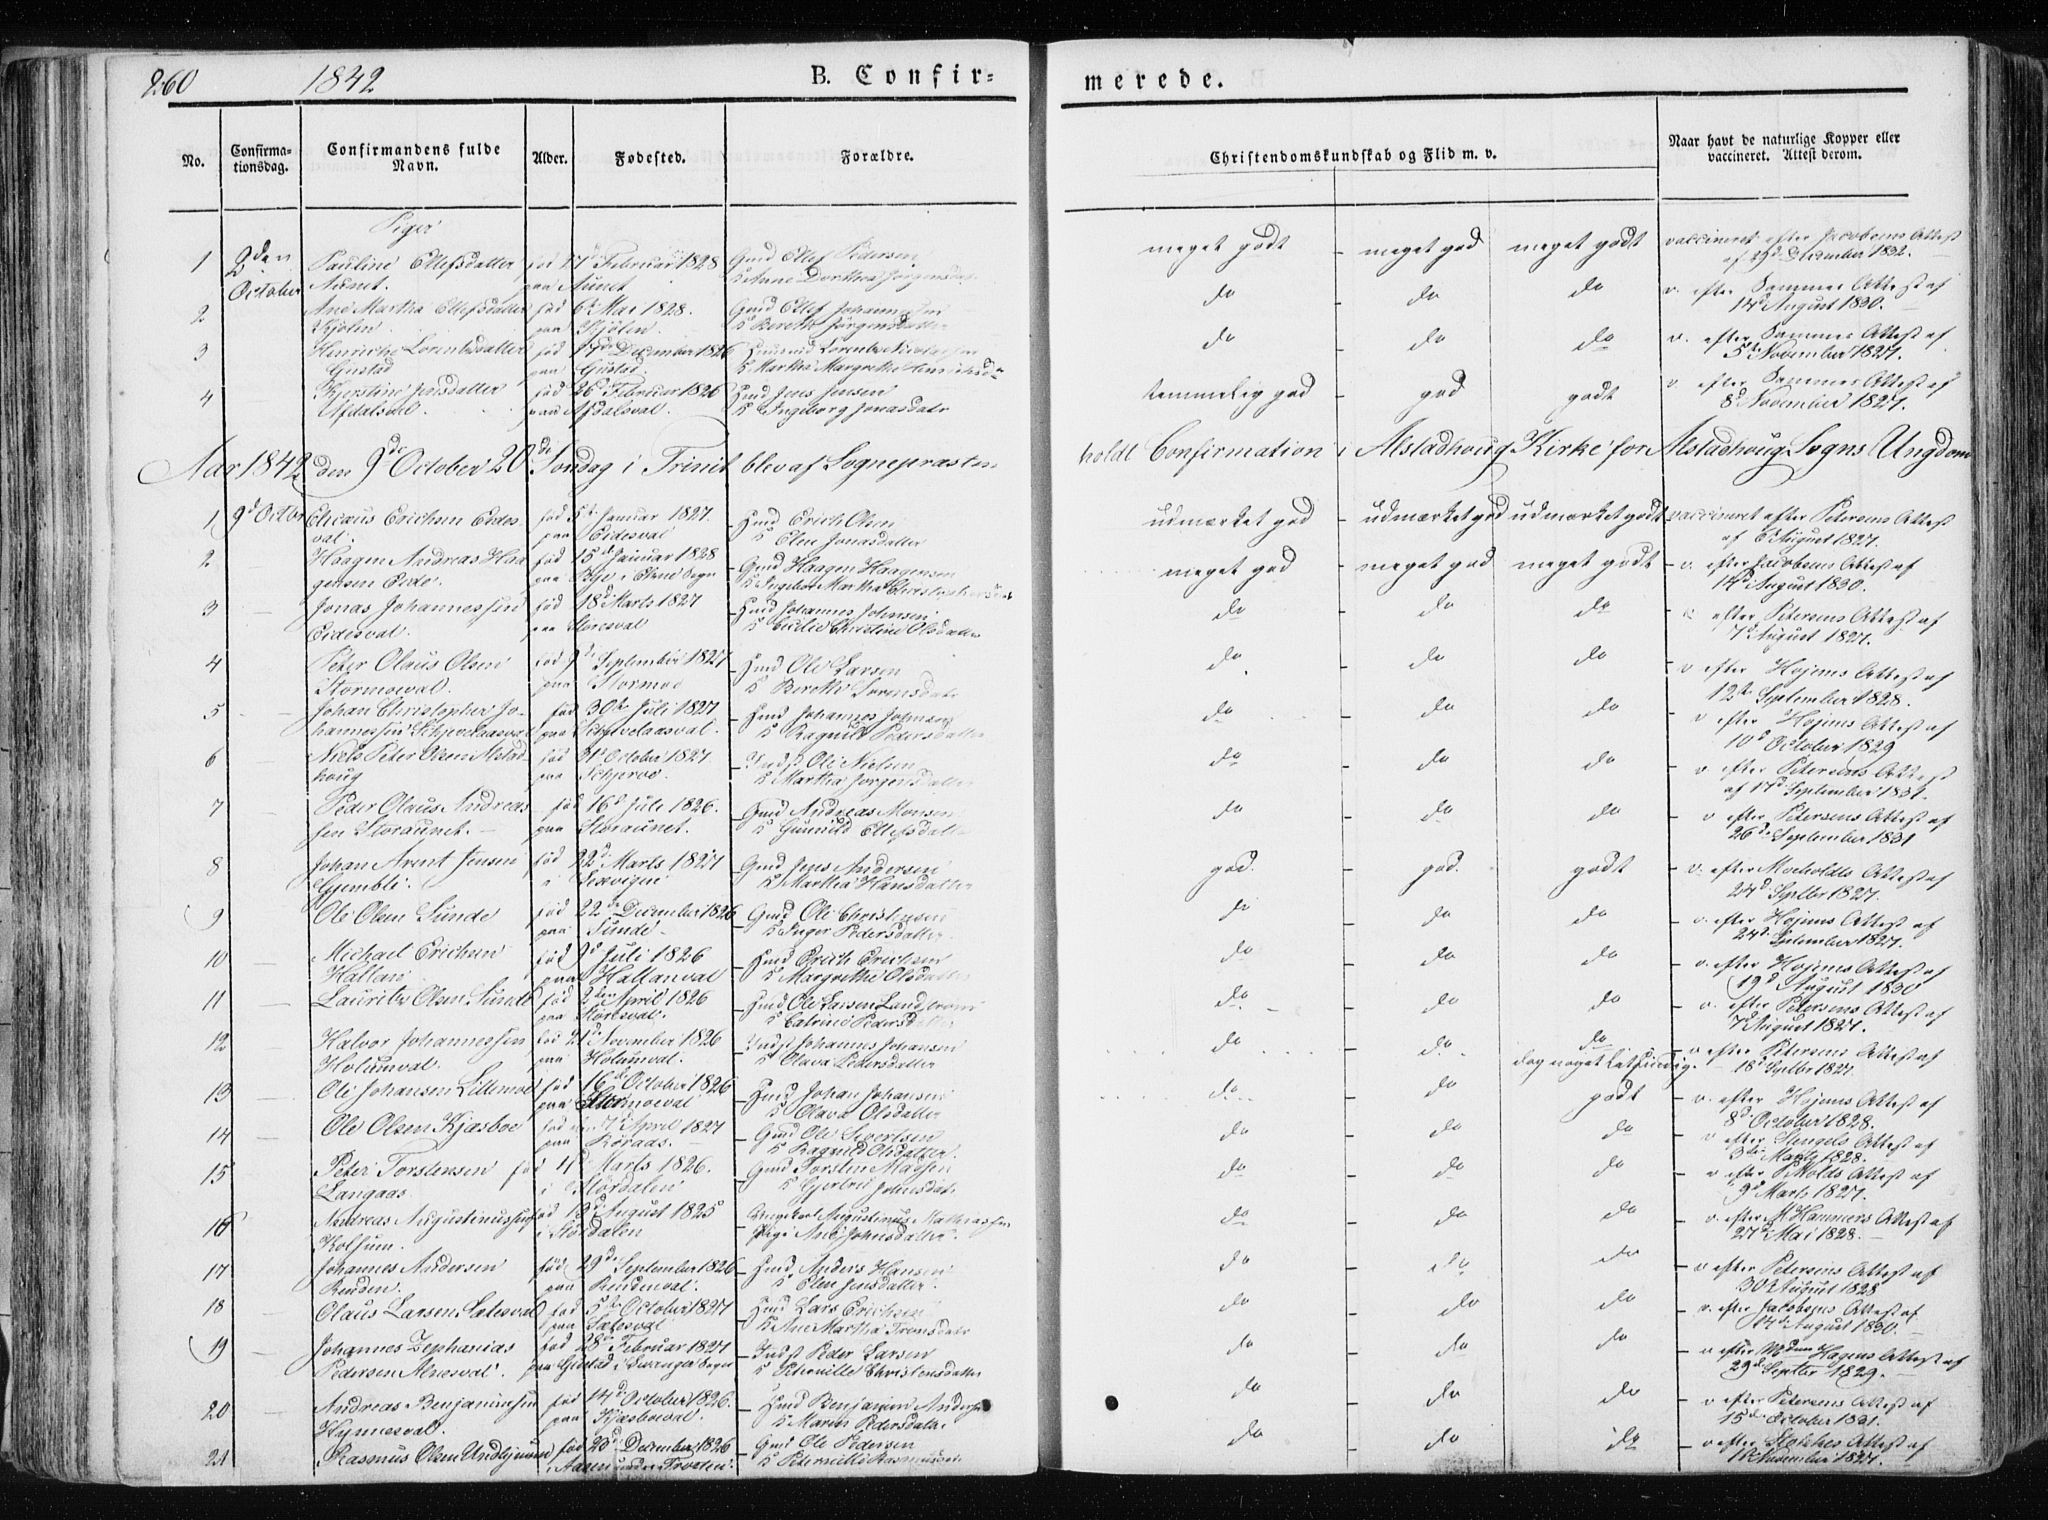 260 1842 B. Confirmerede.
No. Confirmationsdag. Confirmandens fulde Navn. Alder. Fødested. Forældre. Christendomskundskab og Flid m. v. Naar havt de naturlige Kopper eller vaccineret. Attest derom.
Piger
1 2den October Pauline Ellefsdatter Aunet. fød 17d Februar 1828 paa Aunet Gmd Ellef Pedersen H Anne Dorthea Jørgensdat. meget godt meget god meget godt vaccineret efter Jacobsens Attest af 29d December 1832.
2 Ane Martha Ellefsdatter Kjølen. fød 6te Mai 1828. paa Kjølen. Gmd Ellef Johannessen H Berethe Jörgensdatter do do do v. efter Sammes Attest af 14d August 1830.
3 Henricke Lorentsdatter Gustad fød 17de December 1826 paa Gustad. Lorents H Martha Margrethe do do do v. efter Sammes Attest af 5te November 1827.
4 Kjerstine Jensdatter Afdalsval. fød 26d Februar 1826 paa Afdalsval. Hmd Jens Jensen H Ingeborg Jonasdatr temmelig god god godt v. efter Sammes Attest af 8d November 1827.
Aar 1842 den 9de October 20de Søndag i Trinit blev af Sognepræsten holdt Confirmation i Alstadhoug Kirke for Alstadhoug Sogns Ungdom
1 9d Octbr Elicaus Erichsen Eidesval. fød 5te Januar 1827. paa Eidesval Hmd Erich Olsen H Elen Jonasdatter udmærket god udmærket god udmærket godt vaccineret efter Petersens Attest af 6 August 1827.
2 Haagen Andreas Haagensen Eide. fød 15de Januar 1828 paa Bye i Egne Sogn Gmd Haagen Haagensen H Ingebor Martha Christophersdat meget god meget god meget godt v. efter Jacobsens Attest af 14d August 1830.
3 Jonas Johannessen Eidesval. fød 18d Marts 1827 paa Storesval Hmd Johannes Johnsen H Christine Olsdatter do do do v. efter Petersens Attest af 7d August 1827.
4 Peter Olaus Olsen Stormoeval. fød 9de September 1827 paa Stormoe Hmd Ole Larsen H Berethe Sorensdatr do do do v efter Hojems Attest af 12te September 1828.
5 Johan Christopher Johannessen Schjevelaasval fød 30te Juli 1827 paa Schjevelaasval. Hmd Johannes Johnsen H Ragnild Pedersdatter do do do v efter Hojems Attest af 10d October 1829
6 Niels Peter Olsen Alstadhoug fød 31te October 1827. paa Schjerve Indst Ole Nielsen H Martha Jørgensdatter do do do v efter Petersens Attest af 17d September 1831.
7 Peder Olaus Andreassen Storaunet. fød 16d Juli 1826. paa Storaunet. Gmd Andreas Monsen H Gunnild Ellefsdatter do do do v efter Petersens Attest af 26de September 1831
8 Johan Arent Jensen Gjemble. fød 22d Marts 1827 i Lexvigen Gmd Jens Andersen H Martha Hansdatter god. god. godt v. efter Morholdts Attest af 24d Septbr 1827.
9 Ole Olsen Sunde fød 22de December 1826 paa Sunde. Gmd Ole Christensen H Inger Pedersdatter. do do do v. efter Hojems Attest af 24d September 1827.
10 Michael Erichsen Hallan. fød 9d Juli 1826 paa Hallanval Hmd Erich Erichsen H Margrethe Olsdatter do do do v. efter Hojems Attest af 19d August 1830
11 Laurits Olsen Sunde fød 2den April 1826 paa Storesval. Hmd Ole Larsen H Catrine Pedersdatter do do do v. efter Petersens Attest af 7d August 1827.
12 Halvor Johannessen Holumval. fød 21d November 1826 paa Holumval. Indst Johannes Johansen H Olava Pedersdatter do do do dog noget letsindig. v efter Petersens Attest af 18d Septbr 1827.
13 Ole Johansen Lillemoe fød 16de October 1826 paa Stormoeval Hmd Johan Johansen H Olava Olsdatter do do godt v. efter Hojems Attest af 8d October 1828.
14 Ole Olsen Kjæsboe fød den 7 April 1827 paa Röraas. Gmd Ole Sivertsen H Ragnild Olsdatter. do do do v efter Stengels Attest af 3die Marts 1828.
15 Peter Torstensen Langaas fød 4d Marts 1826. i Størdalen Gmd Torsten H Gjertru Johnsdatr do do do v efter P. Wolds Attest af 9d Marts 1827.
16 Andreas Augustinussen Kolsum. fød 13d August 1825 i Stördalen Ungekarl Augustinus Mathiassen Pige Ane Johnsdatter. do do do v. efter M. Hammers Attest af 27d Mai 1828.
17 Johannes Andersen Rinden. fød 29de September 1826 paa Rindenval. Hmd Anders Hansen H Elen Jensdatter. do do do v efter Petersens Attest af 30 August 1828
18 Olaus Larsen Salesval fød 5te October 1827 paa Salesval Hmd Lars Erichsen H Ane Martha do do do v. efter Jacobsens Attest af 14d August 1830.
19 Johannes Zephanias Pedersen Alnesval. fød 28d Februar 1827 paa Gustad i Sogn Indst Peder Larsen H Petronille Christensdatter do do do v efter Mdm Hagens Attest af 29d Septbr 1829.
20 Andreas Benjaminsen Hynnesval. fød 14d October 1826. paa Kjæsboeval. Hmd Benjamin Andersen H Maren Pedersdatr do do do v efter Petersens Attest af 15de October 1831.
21 Rasmus Olsen fød 23d December 1826 Gmd Ole Pedersen H Petronille Rasmusdatr do do do v efter Attest af November 1827.